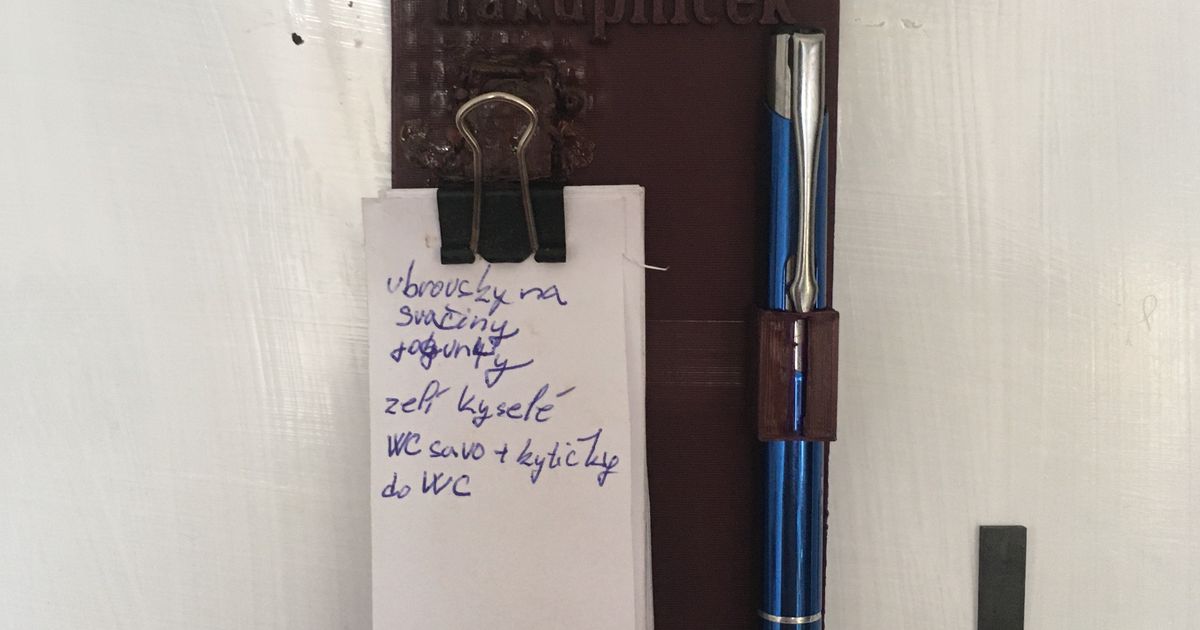 nakupníček
ubrousky na
svačiny
zelí kyselé
WC savo + kytičky
do WC